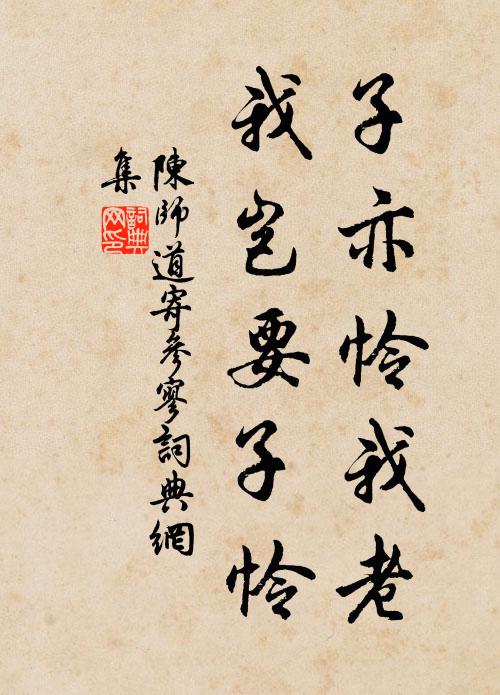 子亦怜我老
我岂要子怜
陳師道寄參寥詞典網
集
詞典网印